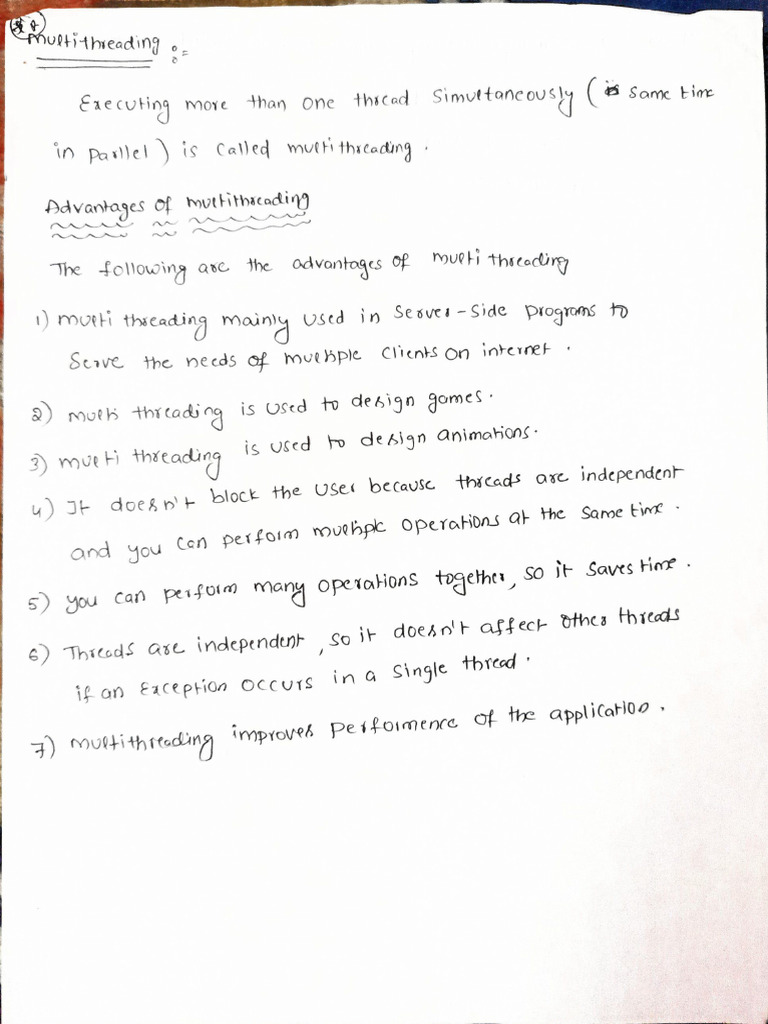 Multithreading :=
Executing more than one thread Simultaneously ( Same time
in parllel ) is called multithreading .
Advantages of multithreading
The following are the advantages of multi threading
1) multi threading mainly used in Server-Side programs to
Serve the needs of multiple clients on internet .
2) multi threading is used to design games.
3) multi threading is used to design animations.
4) It doesn't block the user because threads are independent
and you can perform multiple operations at the same time .
5) you can perform many operations together, so it saves time .
6) Threads are independent, so it doesn't affect other threads
if an Exception occurs in a single thread .
7) multithreading improves performence of the application .